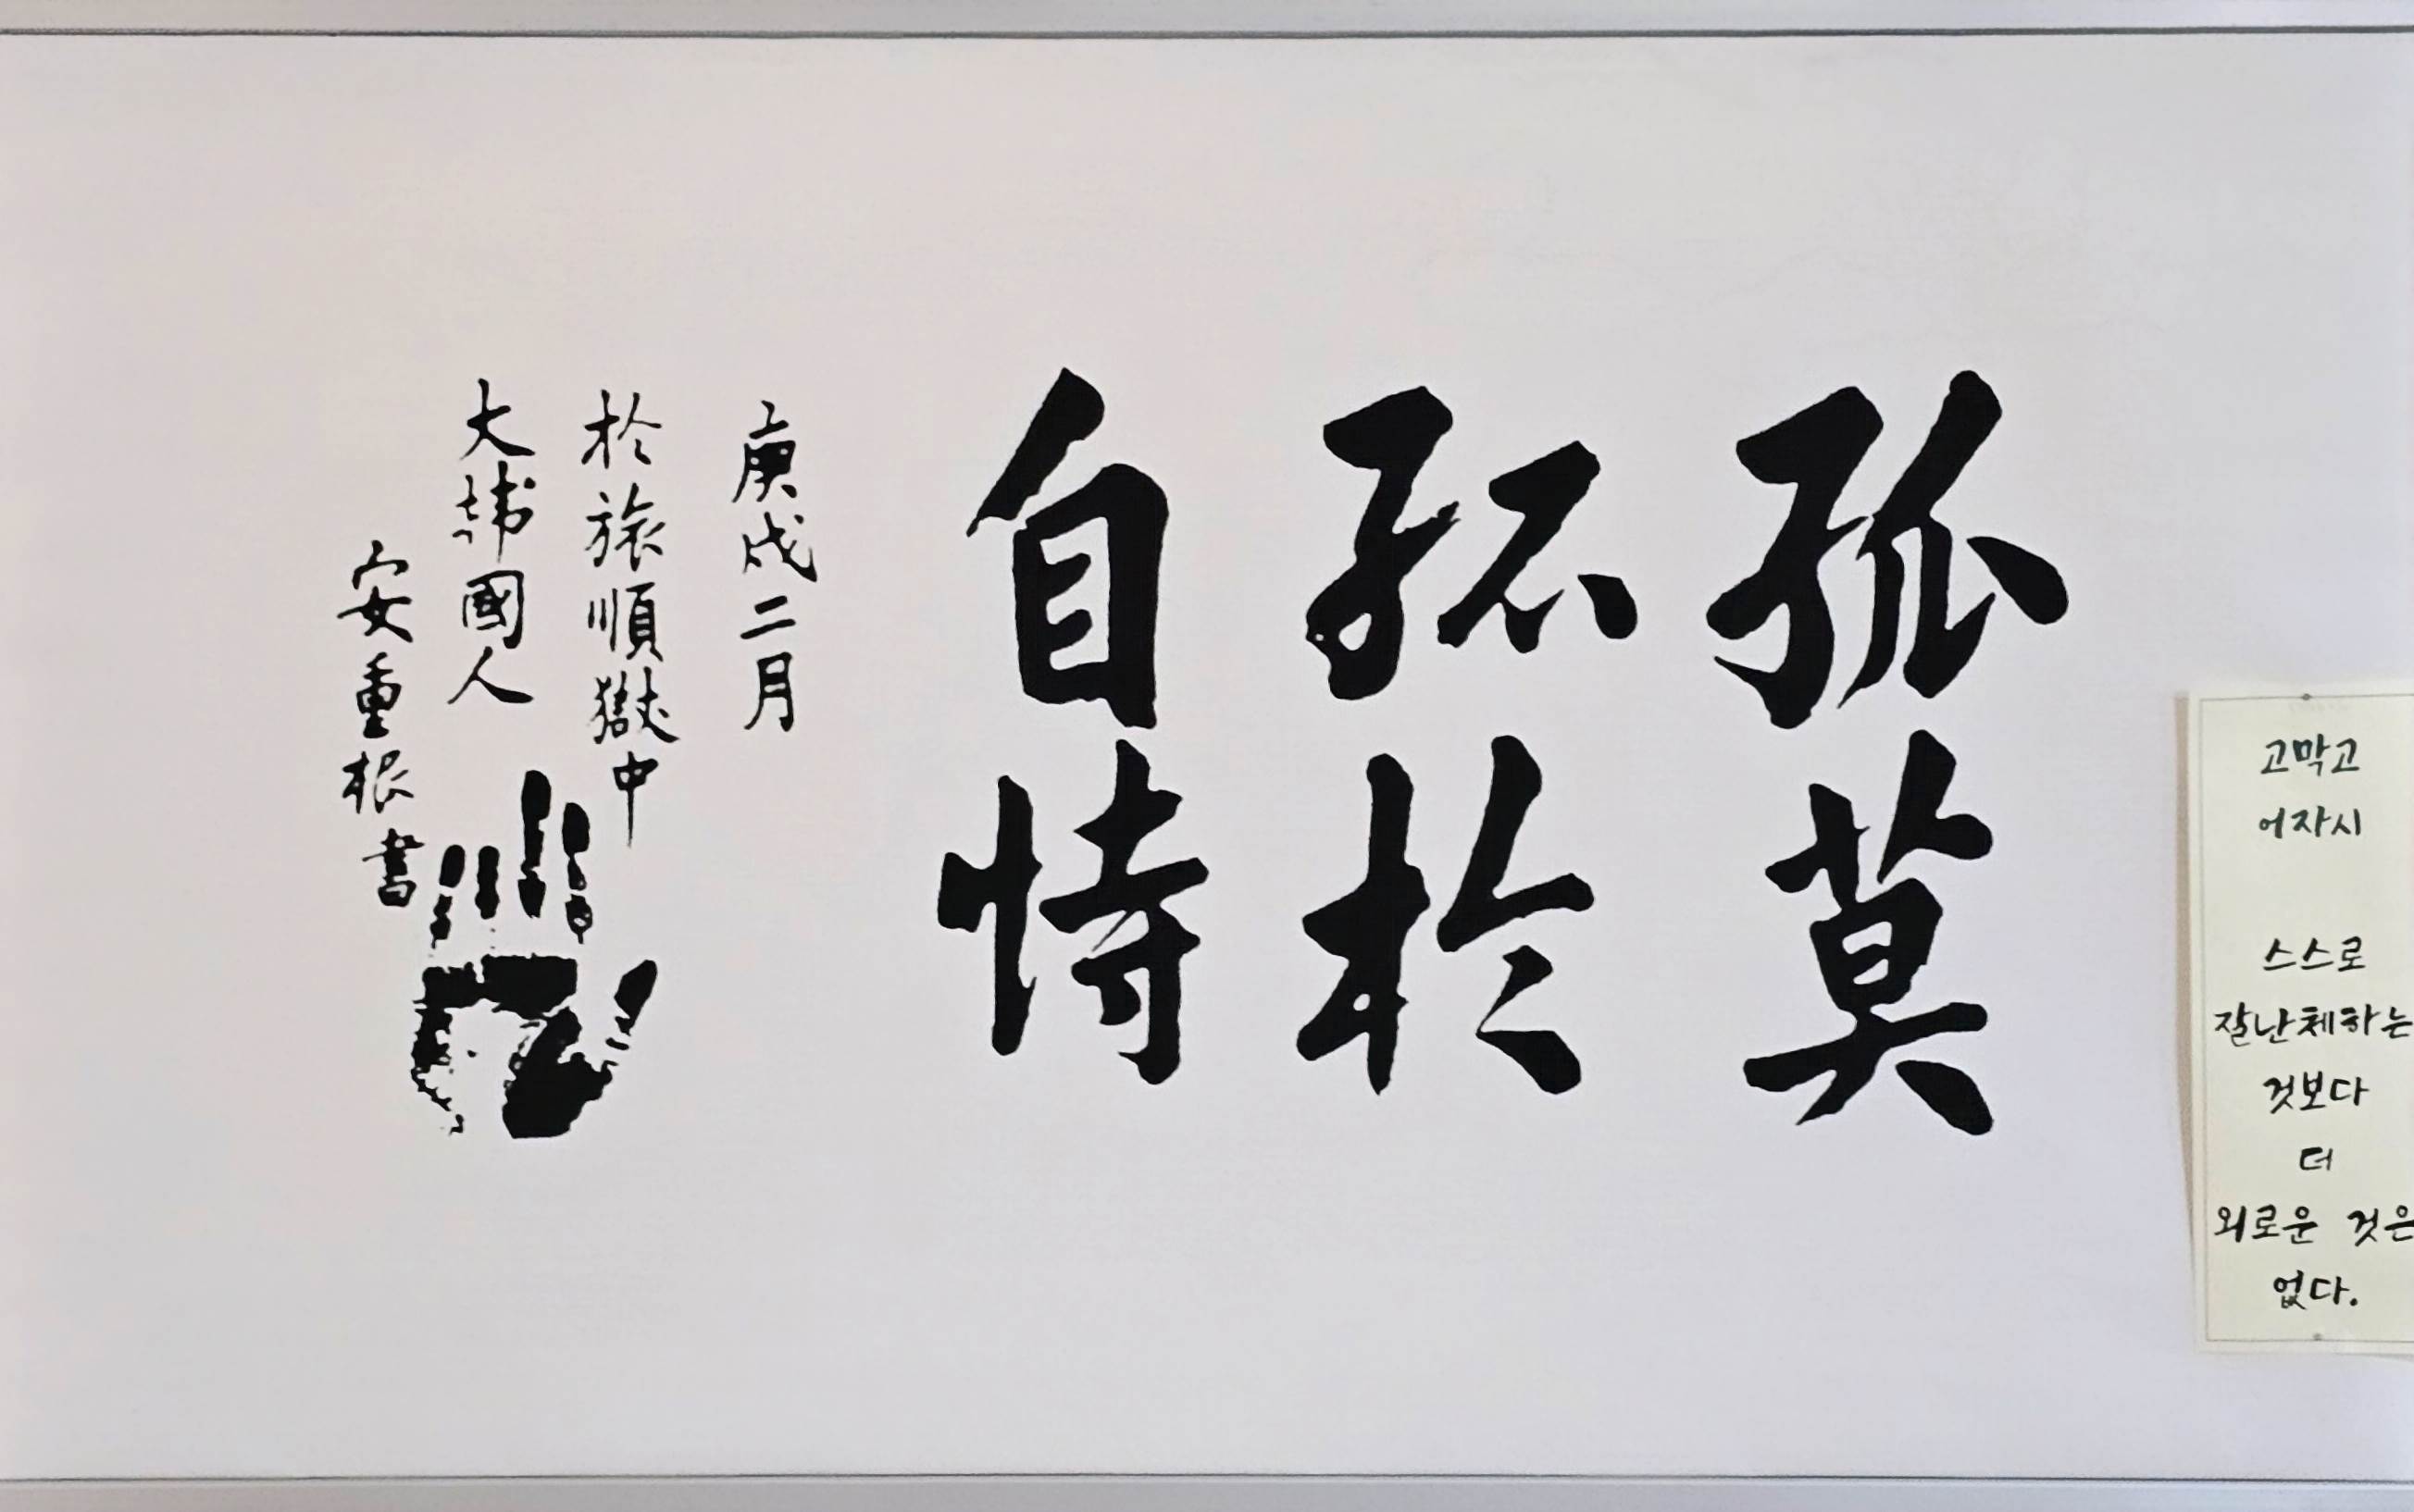 孤莫
孤於
自恃
庚戌二月
於旅順獄中
大韓國人
安重根書
고막고
어자시
스스로
잘난체하는
것보다
더
외로운 것은
없다.